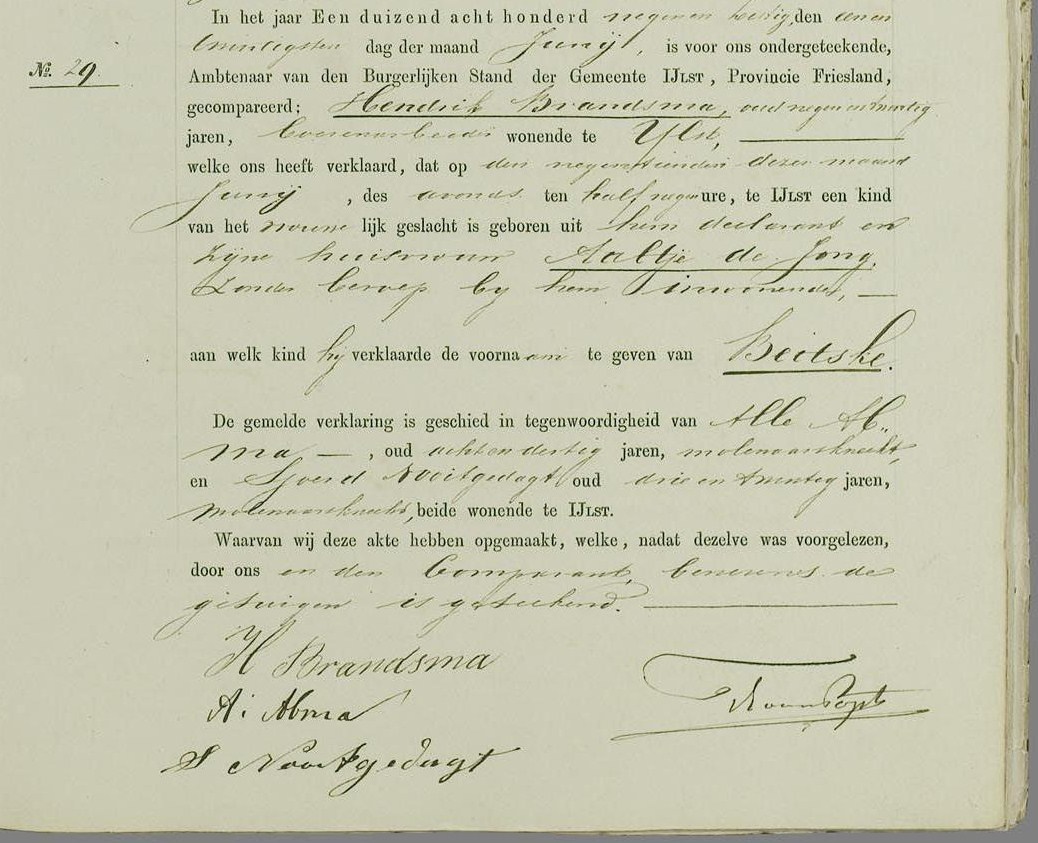 In het jaar Een duizend acht honderd negen en zestig, den eenen
twintigsten dag der maand Junij, is voor ons ondergeteekende,
No. 29. Ambtenaar van den Burgerlijken Stand der Gemeente IJLST, Provincie Friesland,
gecompareerd; Hendrik Brandsma, oud negen en twintig
jaren, boerenarbeider wonende te Ylst,
welke ons heeft verklaard, dat op den negentienden dezer maand
Junij, des avonds ten half negen ure, te IJLST een kind
van het vrouwelijk geslacht is geboren uit hem declarant en
zijne huisvrouw Aaltje de Jong,
zonder beroep by hem inwonende,
aan welk kind hij verklaarde de voornaam te geven van Beitske.
De gemelde verklaring is geschied in tegenwoordigheid van Alle Ab„
ma, oud acht en dertig jaren, molenaarsknecht,
en Sjoerd Nooitgedagt oud drie en twintig jaren,
molenaarsknecht, beide wonende te IJLST.
Waarvan wij deze akte hebben opgemaakt, welke, nadat dezelve was voorgelezen,
door ons en den Comparant, benevens de
getuigen is geteekend.
H Brandsma
A: Abma
S Nooitgedagt